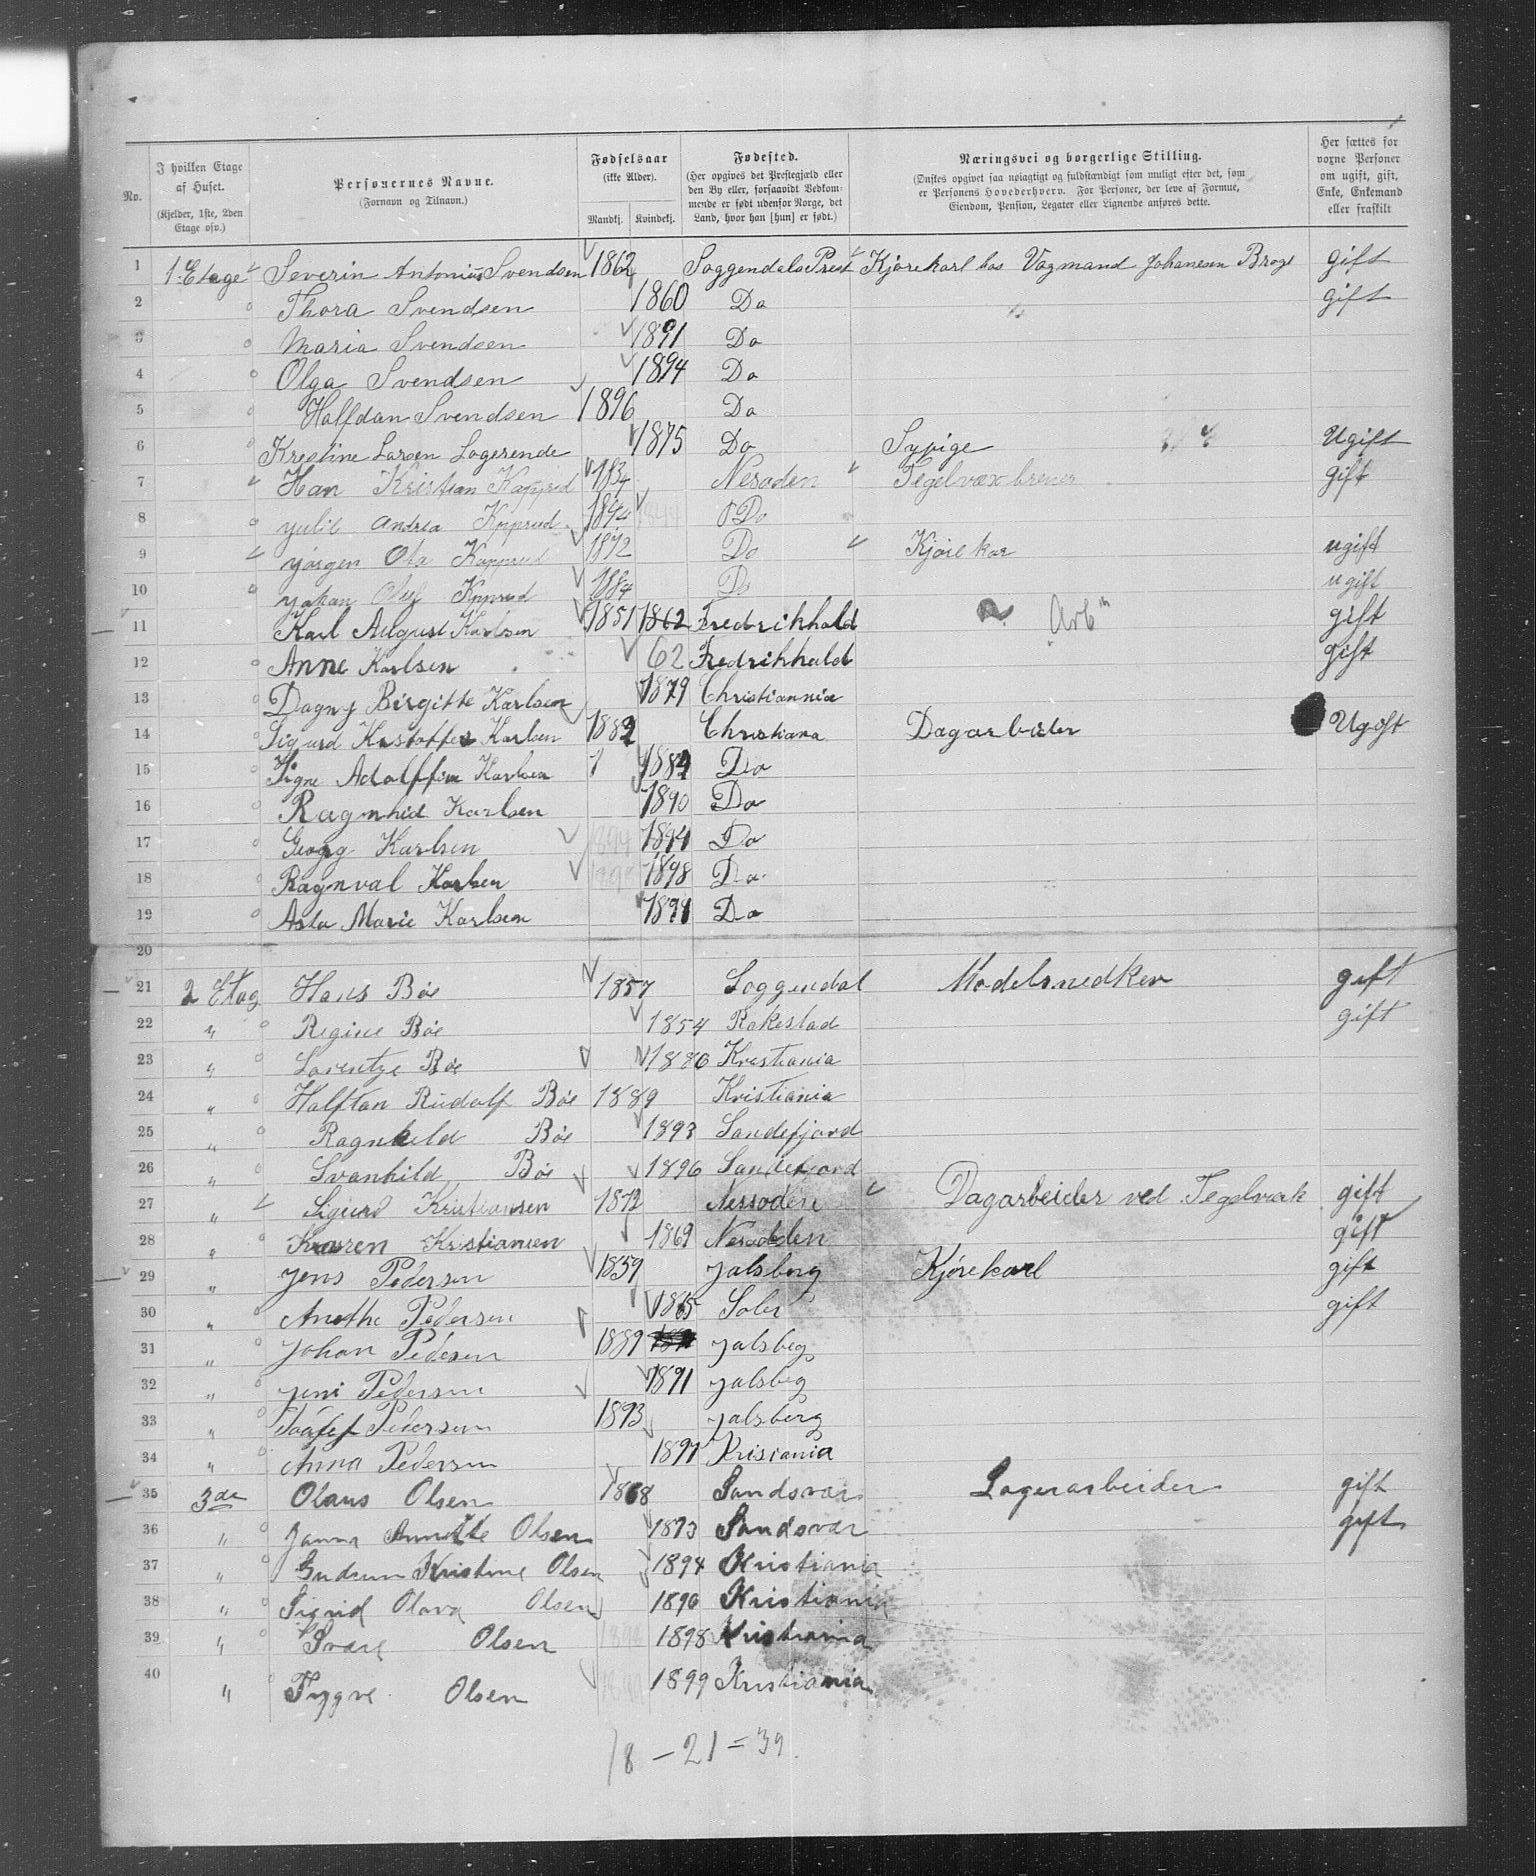 No. I hvilken Etage af Huset. (Kjelder, 1ste, 2den Etage osv.) Personernes Navne. (Fornavn og Tilnavn.) Fødselsaar (ikke Alder). Mandkj. Kvindekj. Fødested. (Her opgives det Prestegjæld eller den By eller, forsaavidt Vedkommende er født udenfor Norge, det Land, hvor han [hun] er født.) Næringsvei og borgerlige Stilling. (Ønskes opgivet saa nøiagtigt og fuldstændigt som muligt efter det, som er Personens Hovederhverv. For Personer, der leve af Formue, Eiendom, Pension, Legater eller Lignende anføres dette. Her sættes for voxne Personer om ugift, gift, Enke, Enkemand eller fraskilt
1 1. Etage Severin Antonius Svendsen 1862 Soggendals Prest Kjørekarl hos Vogmand Johansen Brogt gift
2 Thora Svendsen 1860 Do gift
3 Maria Svendsen 1891 Do
4 Olga Svendsen 1894 Do
5 Halfdan Svendsen 1896 Do
6 Krestine Larsen Logerende 1875 Do Sypige Ugift
7 Han Kristian Kapprud 1834 Nesoden Tegelvæx brener gift
8 yulie Andrea Kpprud 1844 Do
9 yørgen Ole Kapprud 1872 Do Kjørekar ugift
10 yohan Oluf Kpprud 1884 Do ugift
11 Karl August Karlsen 1851 1862 Fredrikhald Arb gift
12 Anne Karlsen 62 Fredrikhald gift
13 Dagny Birgitte Karlsen 1879 Christiannia
14 Sigurd Krstoffer Karlsen 1882 Christiana Dagarbeider Ugift
15 Signe Adolffine Karlsen 1884 Do
16 Ragnhid Karlsen 1890 Do
17 Georg Karlsen 1894 1894 Do
18 Ragnval Karlsen 1898 Do
19 Asta Marie Karlsen Do
20
21 2 Etag Hans Bøe 1857 Soggendal Modelsnedker gift
22 " Regine Bøe 1854 Rakestad gift
23 " Lorentze Bøe 1886 Kristiania
24 " Halftan Rudolf Bøe 1889 Kristiania
25 " Ragnhild Bøe 1893 Sandefjord
26 " Svanhild Bøe 1896 Sandefjord
27 " Sigurd Kristiansen 1872 Nessoden Dagarbeider ved Tegelværk gift
28 " Karen Kristiansen 1869 Nesodden gift
29 " Jens Pedersen 1859 Jalsberg Kjørekarl gift
30 " Anethe Pedersen 1865 Soler gift
31 " Johan Pedesen 1889 Jalsbeg
32 " Jeni Pedersen 1891 Jalsbeg
33 " Josef Pedersen 1893 Jalsberg
34 " Anna Pedersen 1897 Krisiania
35 3de Olaus Olsen 1868 Sandsvær Lagerarbeider gift
36 " Janna Annette Olsen 1873 Sandsvær gift
37 " Gudrun Kristine Olsen 1894 Kristiania
38 " Sigrid Olava Olsen 1896 Kristiania
39 " Svare Olsen 1898 Kristiania
40 " Tygve Olsen 1899 Kristiania
18 – 21 = 39.